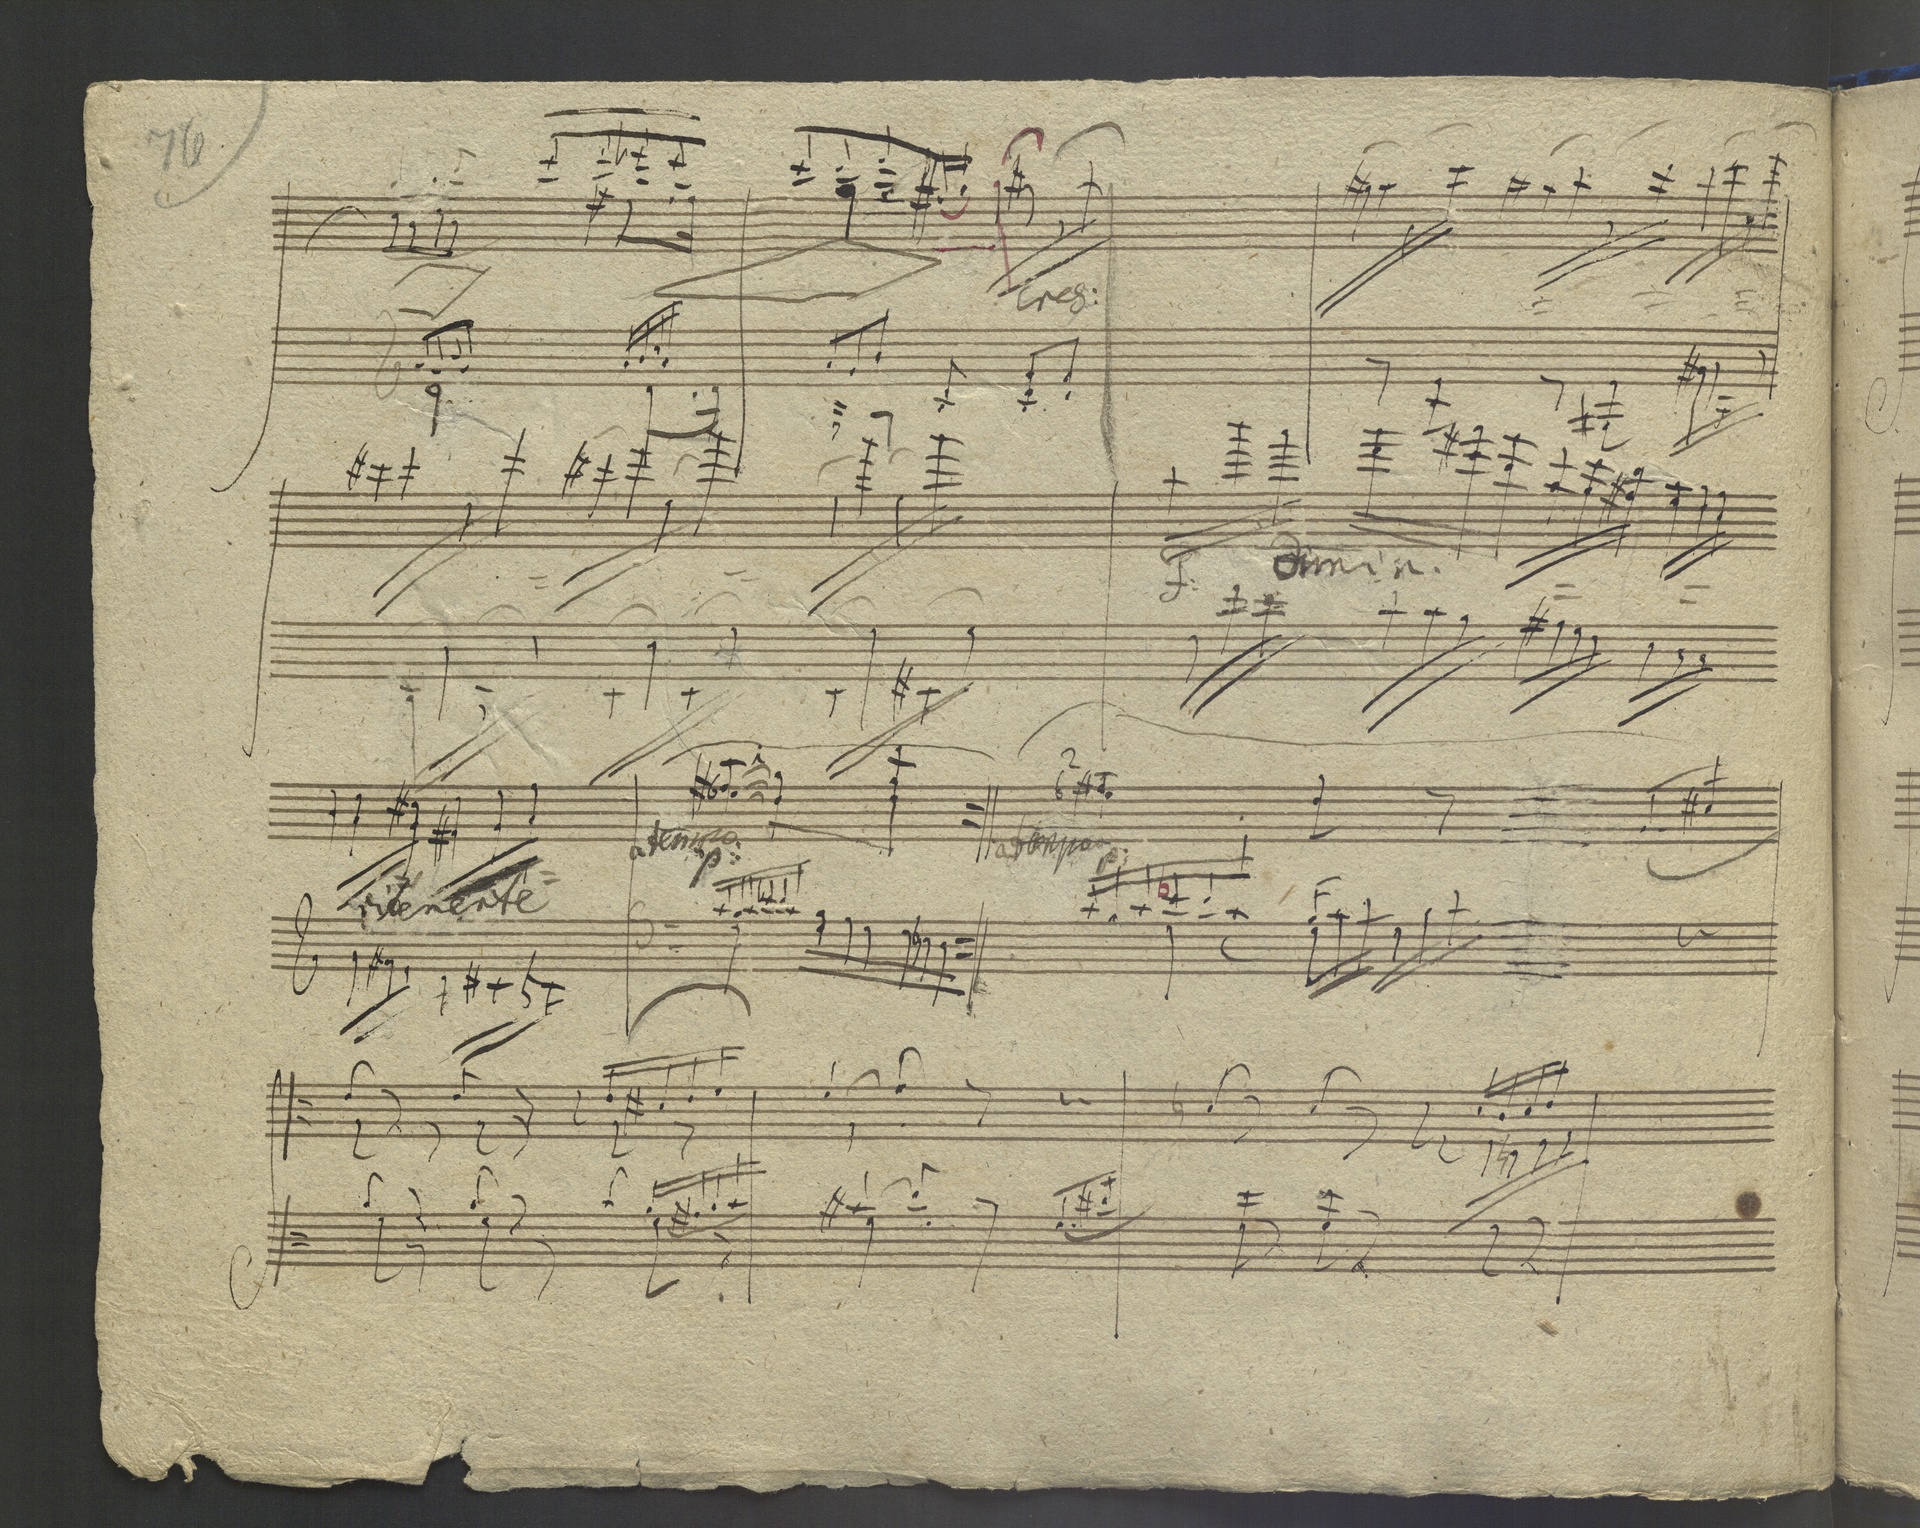 76
cres:
f: dimin.
a tempo a tempo
p: p:
ritenente